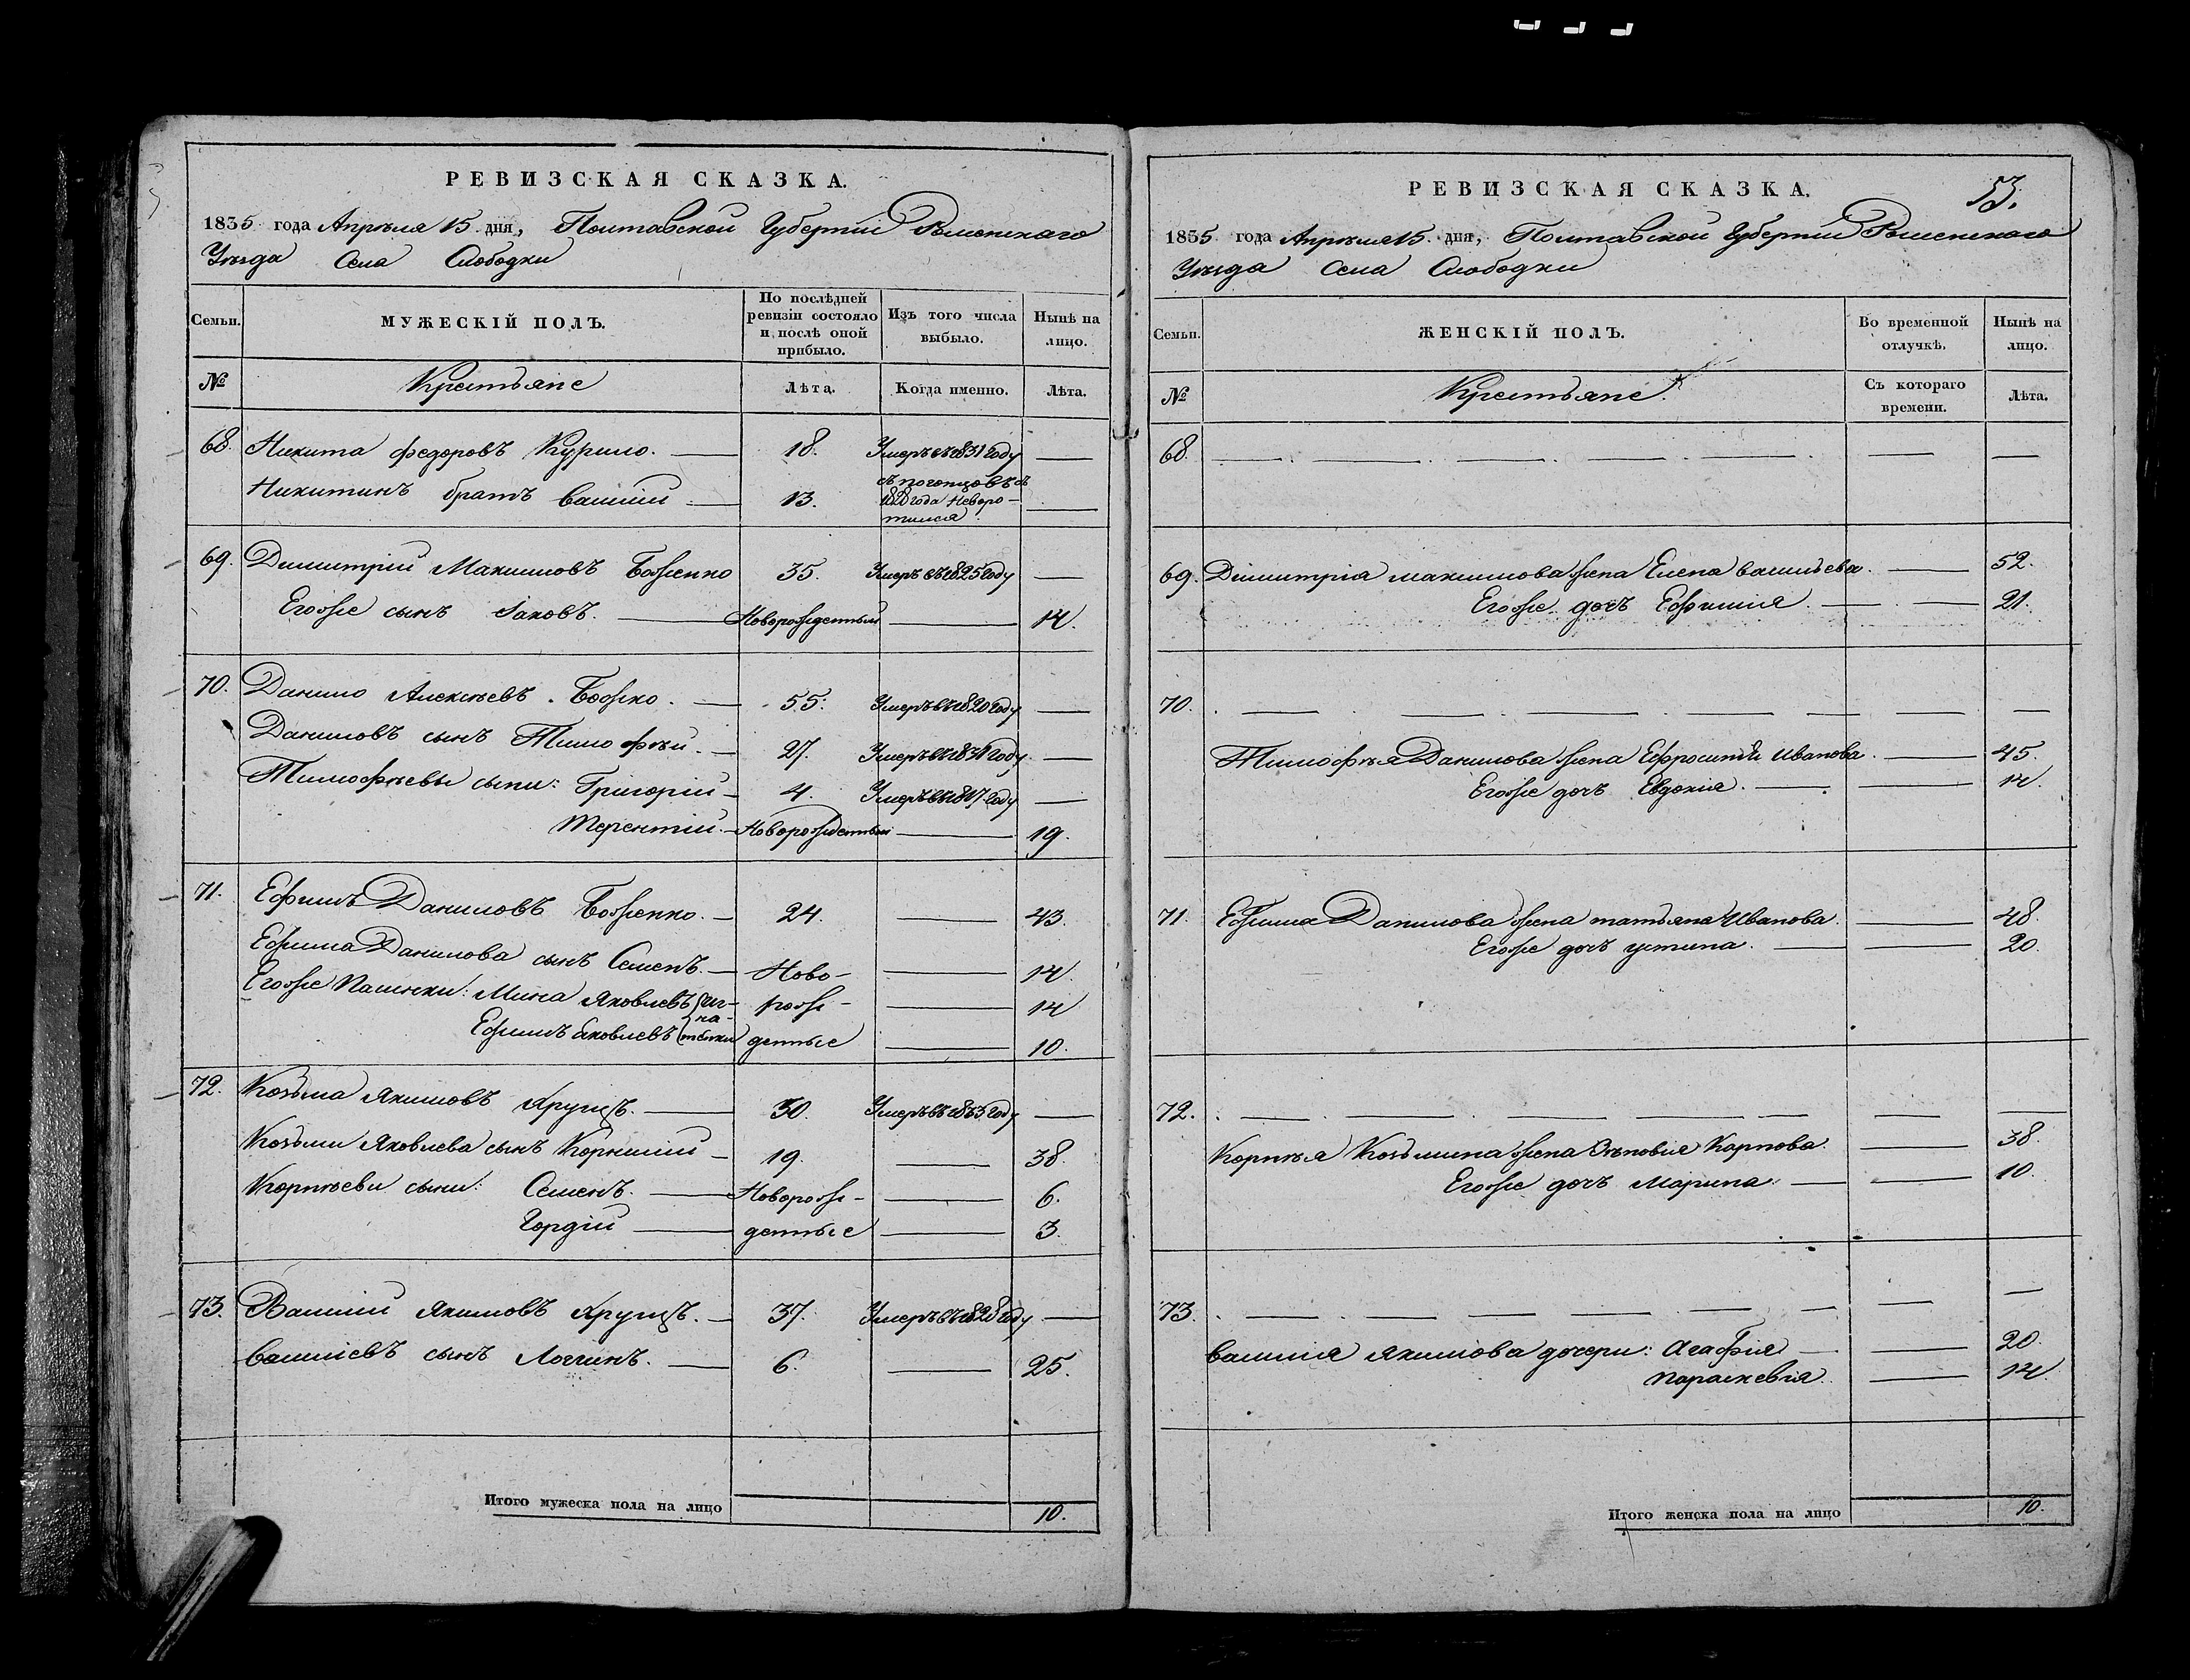 РЕВИЗСКАЯ СКАЗКА.
1835 года Апрѣля 15 дня, Полтавской Губерніи Роменскаго
Уѣзда Села Слободки
Семьи.
МУЖЕСКІЙ ПОЛЪ.
По послѣдней ревизіи состояло и послѣ оной прибыло.
Изъ того числа выбыло.
Нынѣ на лицо.
№
Крестьяне
Лѣта.
Когда именно.
Лѣта.
68. Никита Федоровъ Курило. — 18. Умеръ въ 1831 году —
Никитинъ братъ Василій — 13. съ погонцовъ съ 1828 года Неворотился —
69. Димитрій Максимовъ Боженко 35. Умеръ въ 1825 году —
Егоже сынъ Іаковъ. — Новорожденный — 14.
70. Данило Алексѣевъ Божко. — 55. Умеръ въ 1820 году —
Даниловъ сынъ Тимофѣй. — 27. Умеръ въ 1831 году —
Тимофѣевы сыни: Григорій — 4. Умеръ въ 1817 году —
Терентій. — Новорожденный — 19.
71. Ефимъ Даниловъ Боженко. — 24. — 43.
Ефима Данилова сынъ Семенъ. — Ново- — 14.
Егоже Пасинки: Мина Яковлевъ Иг- рож- — 14
на-
Ефимъ Яковлевъ тенки денные — 10.
72. Козьма Якимовъ Хрущъ. — 30. Умеръ въ 1835 году —
Козьми Яковлева сынъ Корнилій — 19. — 38.
Корнѣеви сыни: Семенъ. — Новорож- — 6.
Гордій — денные — 3.
73. Василій Якимовъ Хрущъ. — 37. Умеръ въ 1828 году —
Василіевъ сынъ Логгинъ. — 6. — 25.
Итого мужеска пола на лицо 10.
РЕВИЗСКАЯ СКАЗКА.
53.
1835 года Апрѣля 15. дня, Полтавской Губерніи Роменскаго
Уѣзда Села Слободки
Семьи.
ЖЕНСКІЙ ПОЛЪ.
Во временной отлучкѣ.
Нынѣ на лицо.
№
Крестьяне.
Съ котораго времени.
Лѣта.
68. — — —
69. Димитрія Максимова жена Елена Васильева. — 52.
Егоже дочь Ефимія. — 21.
70. — — —
Тимофѣя Данилова жена Ефросинія Иванова — 45.
Егоже дочъ Евдокія. — 14.
71. Ефима Данилова жена татьяна Иванова. — 48.
Егоже дочъ устина. — 20.
72. — — —
Корнѣя Козьмина жена Зѣновія Карпова. — 38.
Егоже дочъ Марина. — 10.
73. — — —
Василія Якимова дочери: Агафія — 20.
Параскевія. — 14.
Итого женска пола на лицо 10.